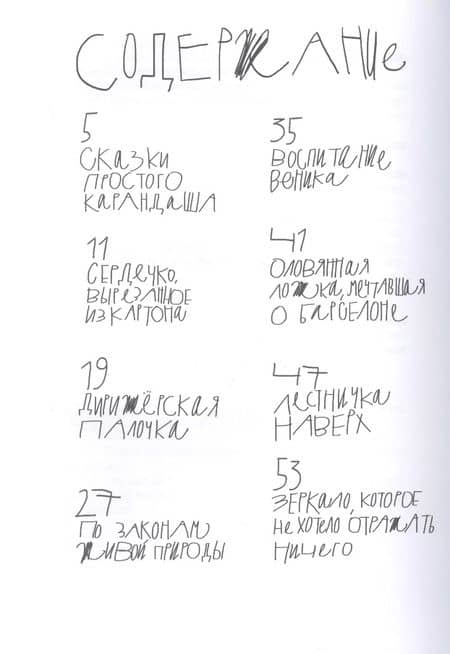 СОДЕРЖАНИЕ
5
СКАЗКИ
ПРОСТОГО
КАРАНДАША
11
СЕРДЕЧКО,
ВЫРЕЗАННОЕ
ИЗ КАРТОНА
19
ДИРИЖЁРСКАЯ
ПАЛОЧКА
27
ПО ЗАКОНАМ
ЖИВОЙ ПРИРОДЫ
35
ВОСПИТАНИЕ
ВЕНИКА
41
ОЛОВЯННАЯ
ЛОЖКА, МЕЧТАВШАЯ
О БАРСЕЛОНЕ
47
ЛЕСТНИЧКА
НАВЕРХ
53
ЗЕРКАЛО, КОТОРОЕ
НЕ ХОТЕЛО ОТРАЖАТЬ
НИЧЕГО